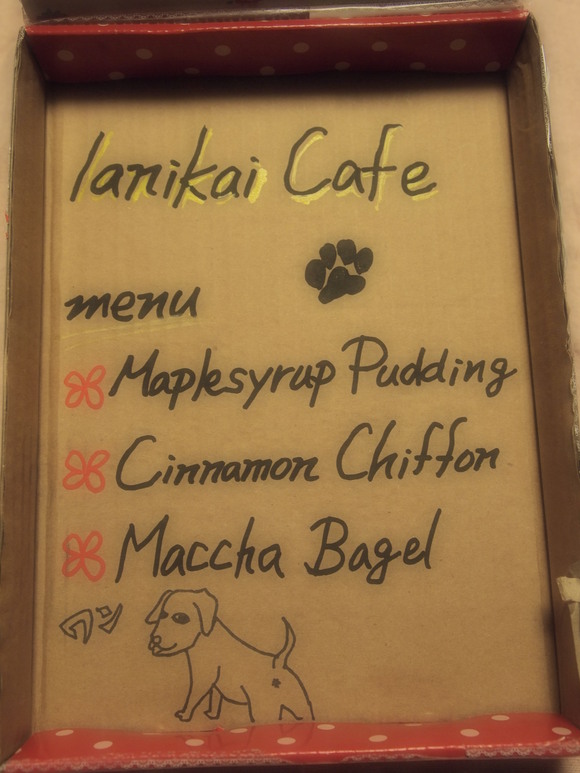 lanikai Cafe
menu
Maplesyrup Pudding
Cinnamon Chiffon
Maccha Bagel
ワン